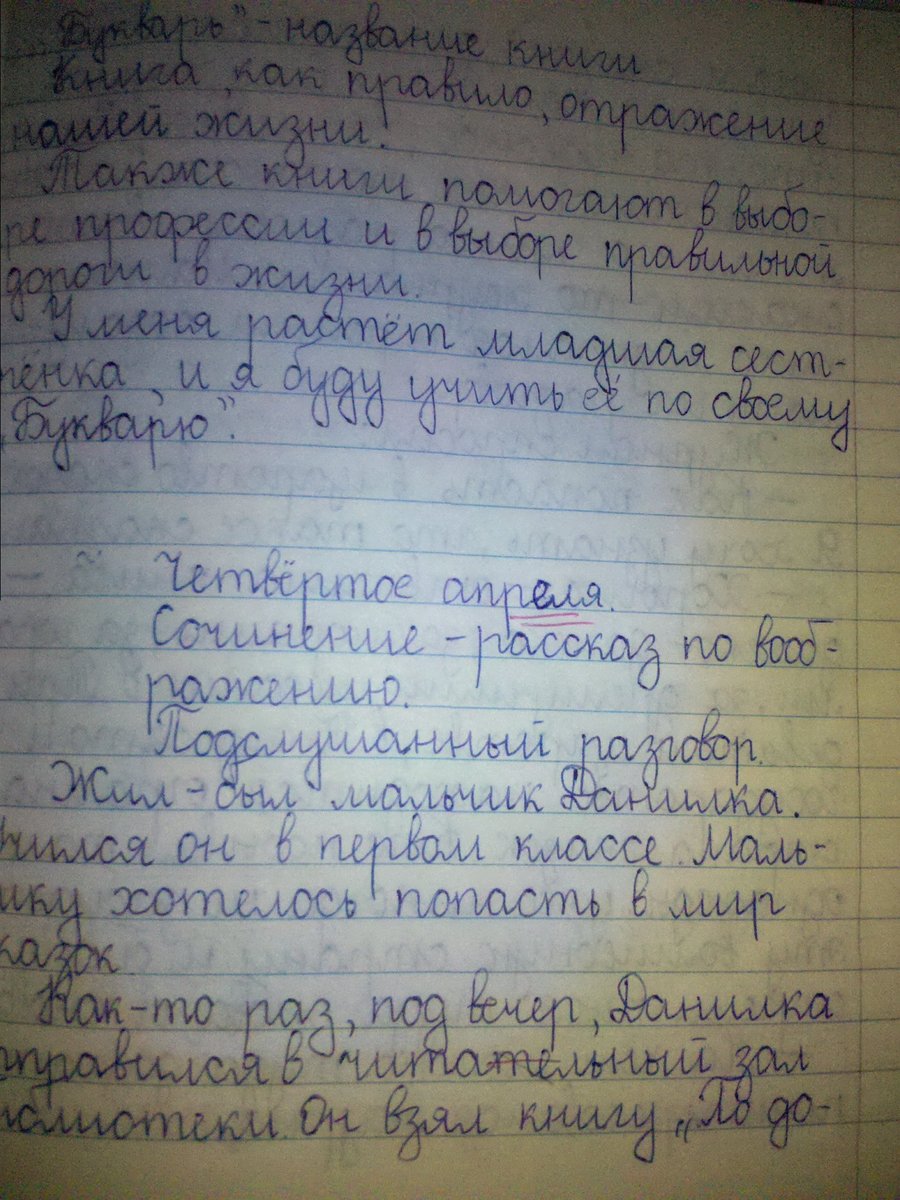 Букварь" - название книги
Книга, как правило, отражение
нашей жизни.
Также книги помогают в выбо-
ре профессии и в выборе правильной
дороги в жизни.
У меня растёт младшая сест-
рёнка, и я буду учить её по своему
„Букварю".
Четвёртое апреля.
Сочинение - рассказ по вооб-
ражению.
Подслушанный разговор.
Жил-был мальчик Данилка.
чился он в первом классе. Маль-
ику хотелось попасть в мир
казок
Как-то раз, под вечер, Данилка
тправился в читательный зал
иблиотеки. Он взял книгу „По до-